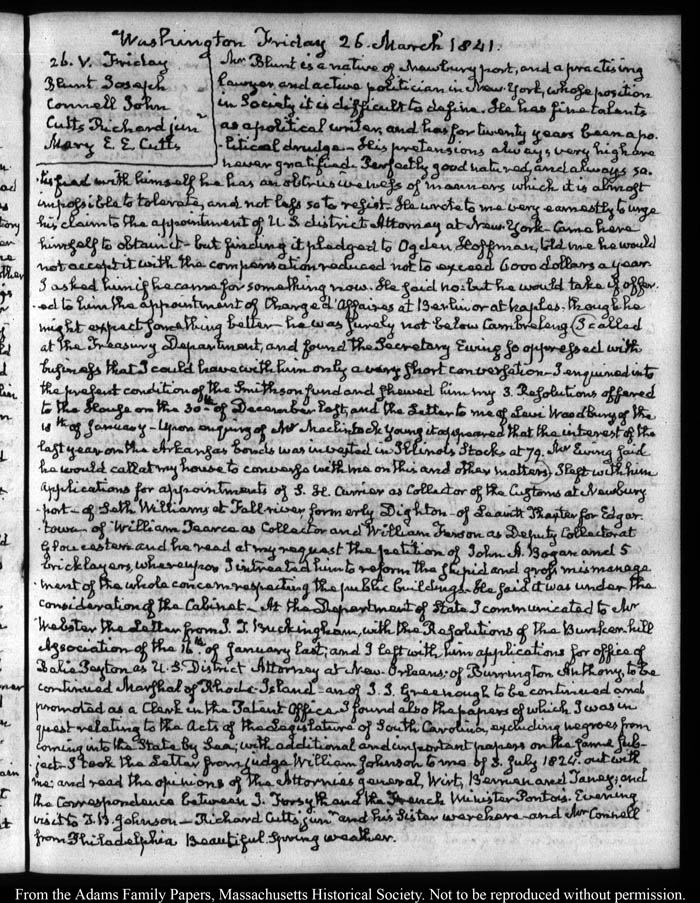 Washington Friday 26. March 1841.
26. V. Friday
Blunt Joseph
Connell John
Cutts Richard junr
Mary E. E. Cutts
Mr Blunt is a native of Newbury port, and a practising
lawyer, and active politician in New York, whose position
in Society it is difficult to define. He has fine talents
as a political writer, and has for twenty years been a po-
litical drudge. His pretensions always very high are
never gratified. Perfectly good natured, and always sa-
tisfied with himself he has an obtrusiveness of manners which it is almost
impossible to tolerate, and not less so to resist. He wrote to me very earnestly to urge
his claim to the appointment of U.S. district Attorney at New York. Came here
himself to obtain it - but finding it pledged to Ogden Hoffman, told me he would
not accept it with the compensation reduced not to exceed 6000 dollars a year.
I asked him if he came for something now. He said no: but he would take if offer-
ed to him the appointment of Chargé d'Affaires at Berlin or at Naples. though he
might expect something better - he was surely not below Cambreleng. I called
at the Treasury Department, and found the Secretary Ewing so oppressed with
business that I could have with him only a very short conversation. I enquired into
the present condition of the Smithson fund and shewed him my 3. Resolutions offered
to the House on the 30th of December last, and the Letter to me of Levi Woodbury of the
18th of January - Upon enquiry of Mr Macclintock Young it appeared that the interest of the
last year on the Arkansas bonds was invested in Illinois Stocks at 79. Mr Ewing said
he would call at my house to converse with me on this and other matters. I left with him
applications for appointments of S. H. Currier as Collector of the Customs at Newbury
port - of Seth Williams at Fall river formerly Dighton - of Leavitt Thaxter for Edgar-
town - of William Pearce as Collector and William Ferson as Deputy Collector at
Gloucester and he read at my request the petition of John A. Bogan and 5
bricklayers, whereupon I intreated him to reform the stupid and gross mismanage
ment of the whole concern respecting the public buildings. He said it was under the
consideration of the Cabinet - At the Department of State I communicated to Mr
Webster the Letter from J. T. Buckingham, with the Resolutions of the Bunker-hill
Association of the 16th of January last; and I left with him applications for office of
Balie Peyton as U.S. District Attorney at New-Orleans; of Burrington Anthony, to be
continued Marshal of Rhode-Island - and of J. J. Greenough to be continued and
promoted as a Clerk in the Patent Office. I found also the papers of which I was in
quest relating to the Acts of the Legislature of South Carolina, excluding negroes from
coming into the State by Sea; with additional and important papers on the same Sub-
ject. I took the Letter from Judge William Johnson to me of 3. July 1824. out with
me; and read the opinions of the Attornies general, Wirt, Berrien and Taney; and
the Correspondence between J. Forsyth and the French Minister Pontois. Evening
visit to J. B. Johnson - Richard Cutts junr and his Sister were here - and Mr Connell
from Philadelphia Beautiful Spring weather.
From the Adams Family Papers, Massachusetts Historical Society. Not to be reproduced without permission.